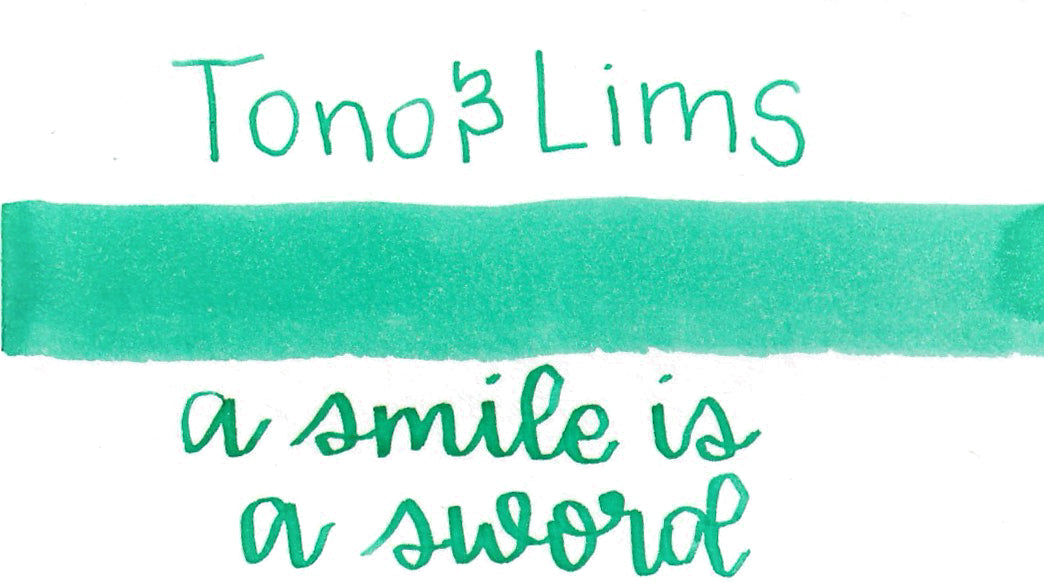 Tono & Lims
a smile is
a sword